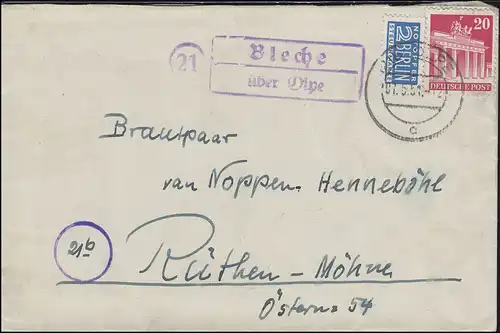 21
Bleche
über Olpe
NOTOPFER
2 BERLIN
STEUERMARKE
20
DEUTSCHE POST
Brautpaar
van Noppen-Henneböhl
21b
Rüthen-Möhne
Östern 54